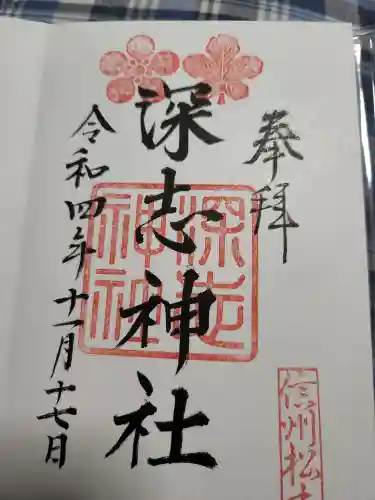 奉拝
深志神社
深志神社
令和四年十一月十七日
信州松